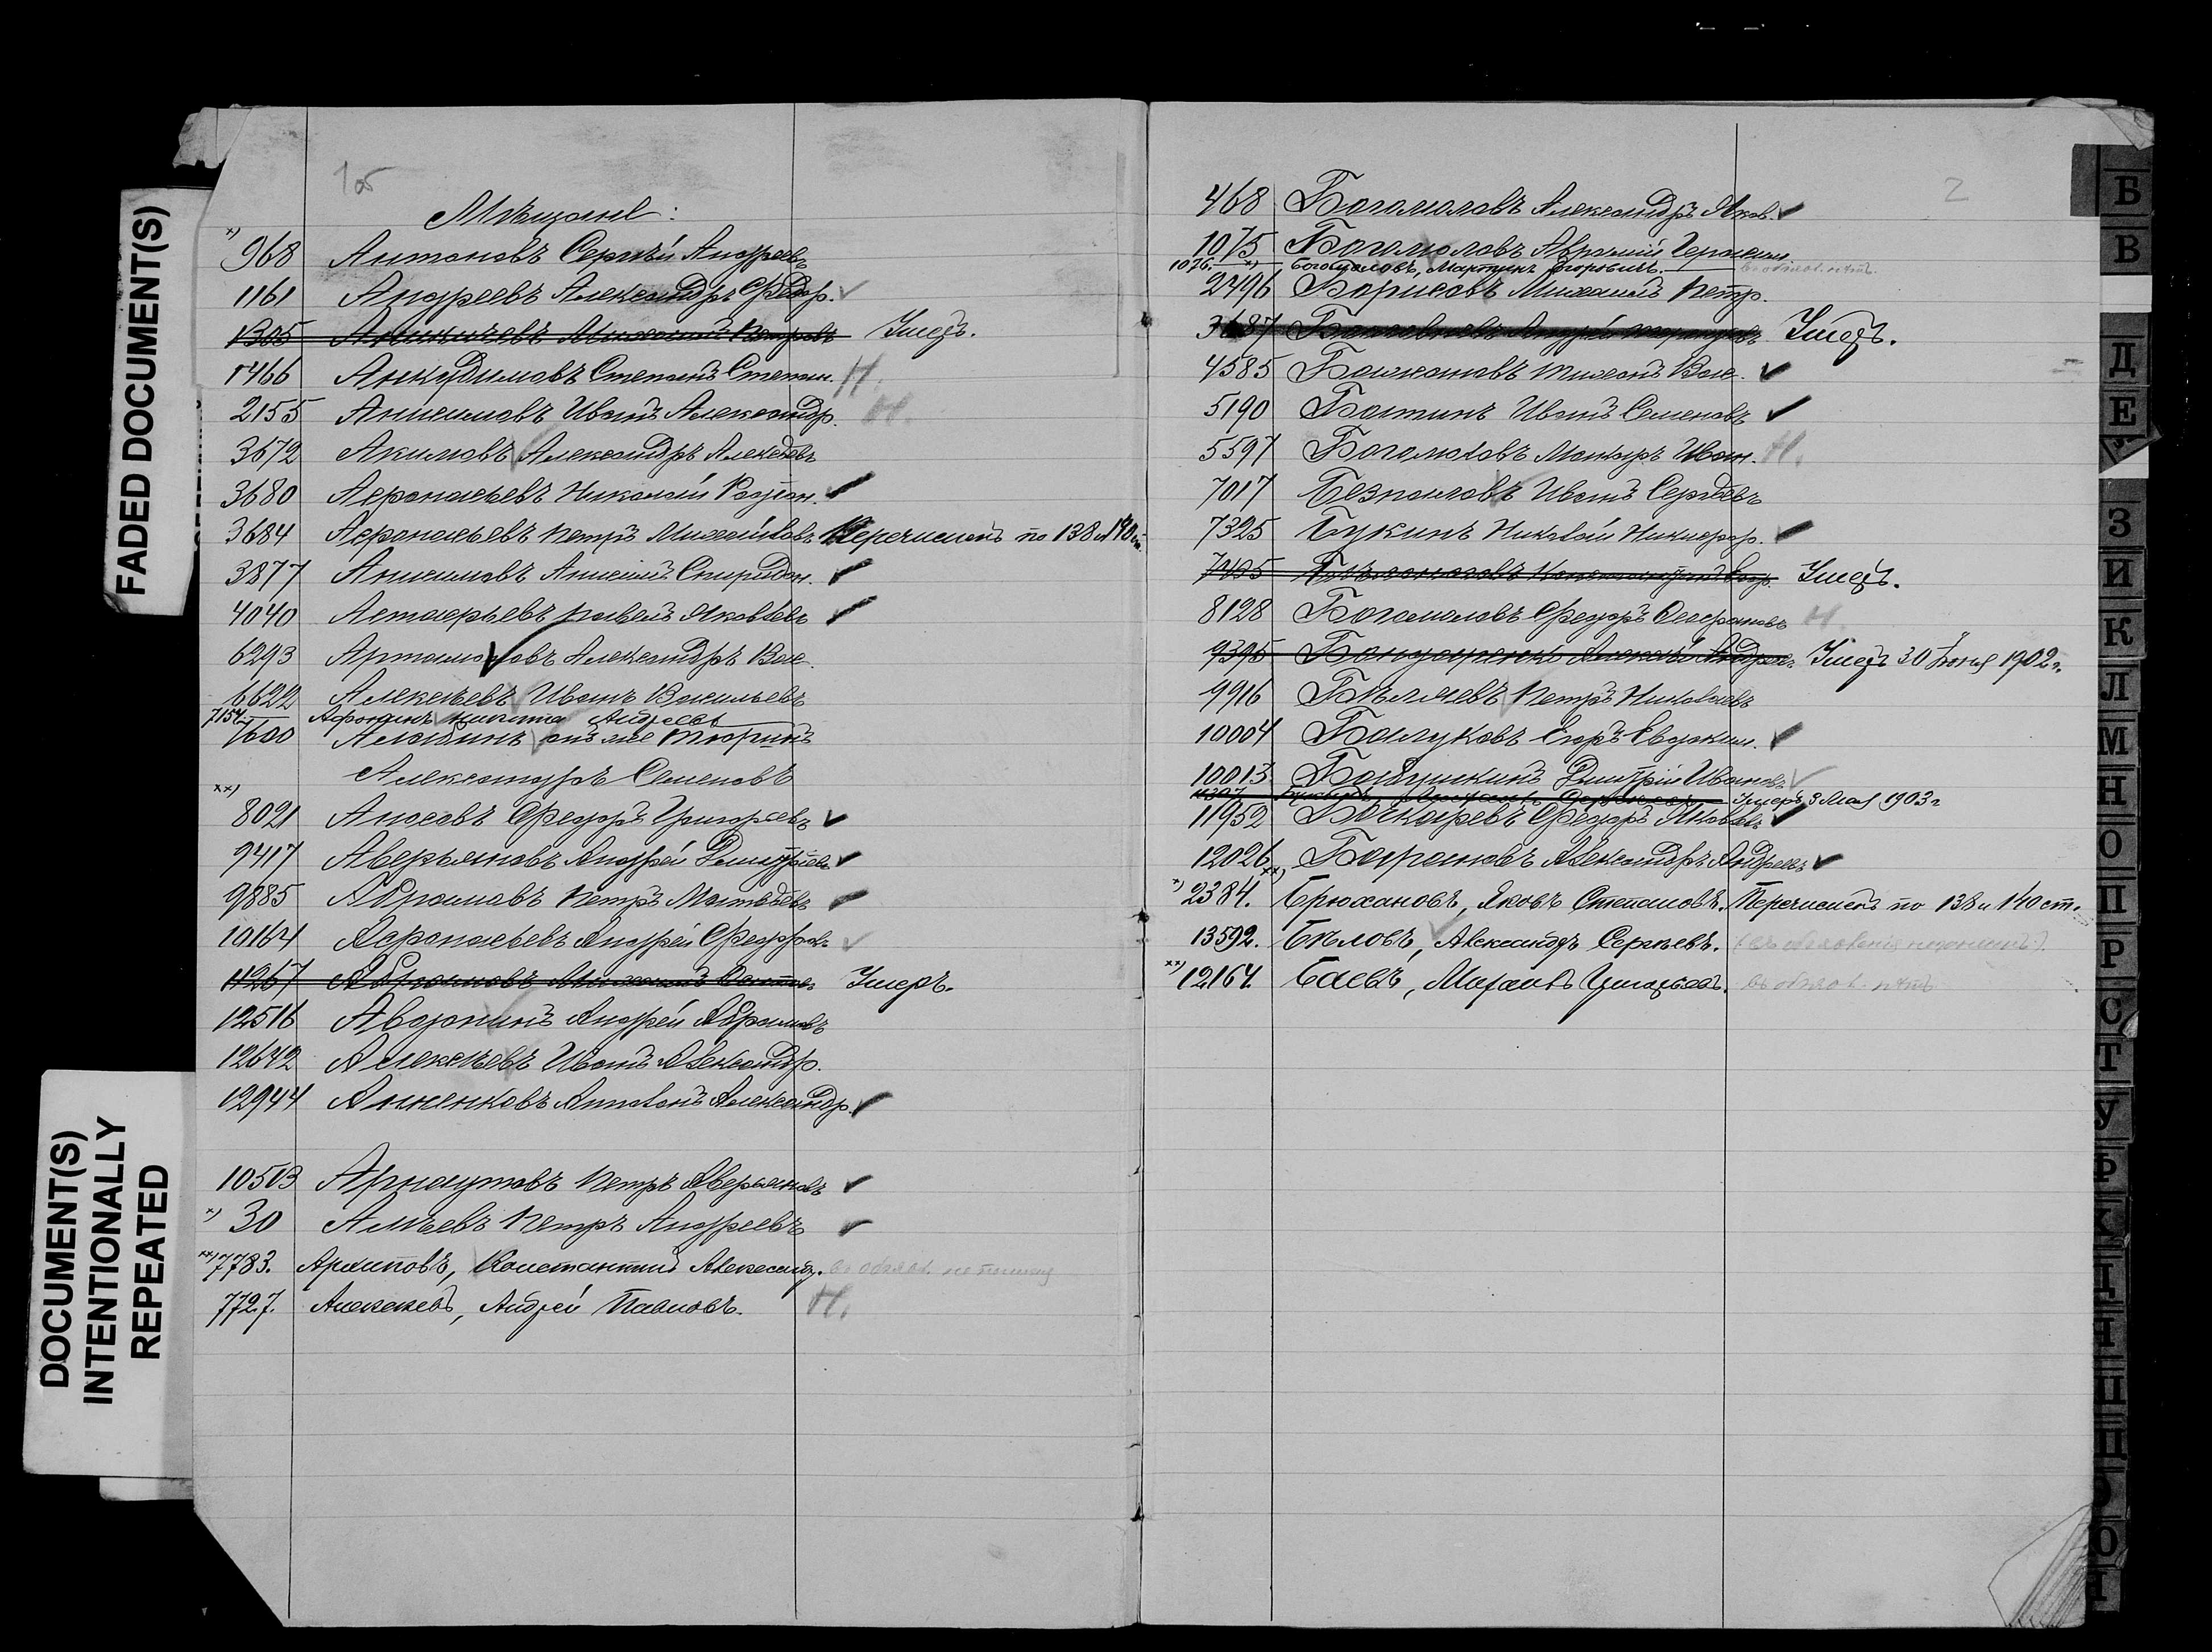 FADED DOCUMENT(S)
DOCUMENT(S)
INTENTIONALLY
REPEATED
105
Мѣщане:
х) 968 Антоновъ Сергѣй Андреевъ
1161 Андреевъ Александръ Федор.
1305 Петровъ Умеръ.
1466 Анкудимовъ Степанъ Степан. Н.
2155 Анисимовъ Иванъ Александр. Н.
3672 Акимовъ Александръ Алексѣевъ
3680 Афанасьевъ Николай Родіон.
3684 Афанасьевъ Петръ Михайловъ Перечисленъ по 138 и 140 ст.
3877 Анисимовъ Анисимъ Спиридон.
4040 Астафьевъ Павелъ Яковлевъ
6293 Артамоновъ Александръ Вас.
6622 Алексѣевъ Иванъ Васильевъ
7154 Афонинъ Никита Андреевъ
7600 Алабинъ онъ же
Александръ Семеновъ
хх)
8021 Аносовъ Федоръ Григорьевъ
9417 Аверьяновъ Андрей Дмитріевъ
9885 Абрамовъ Петръ Матвѣевъ
10164 Афанасьевъ Андрей Федоровъ
11267 Абрамовъ Умеръ.
12516 Авдонинъ Андрей Абрамовъ
12642 Алексѣевъ Иванъ Александр.
12944 Анненковъ Антонъ Александр.
10503 Арнаутовъ Петръ Аверьяновъ
х) 30 Алѣевъ Петръ Андреевъ
хх) 7783. Архиповъ, Константинъ Александр.
7727. Алексѣевъ, Андрей Павловъ. Н.
2
468 Богомоловъ Александръ Яков.
1075 Богомоловъ Авраамій Герасим.
1076. х) Богомоловъ, Мартынъ Егоровичъ.
2496 Борисовъ Михаилъ Петр.
3687 Андрей Умеръ.
4585 Башкановъ Тихонъ Вас.
5190 Батинъ Иванъ Семеновъ
5597 Богомоловъ Макаръ Иван. Н.
7017 Безпаловъ Иванъ Сергѣевъ
7325 Букинъ Николай Никифор.
7435 Умеръ.
8128 Богомоловъ Федоръ Сафроновъ Н.
9395 Бондаренко Алексѣй Андрее. Умеръ 30 Іюня 1902 г.
9916 Бѣляевъ Петръ Николаевъ
10004 Балуковъ Егоръ Евдоким.
10013 Бабушкинъ Дмитрій Ивановъ
Умеръ 3 Мая 1903 г
11952 Бочкаревъ Федоръ Яковлевъ
12026 Барановъ Александръ Андреевъ
х) 2384. хх) Брюхановъ, Яковъ Степановъ. Перечисленъ по 138 и 140 ст.
13592. Бѣловъ, Александръ Сергѣевъ.
хх) 12164. Баевъ, Михаилъ Григорьевъ.
Б
В
Д
Е
З
И
К
Л
М
Н
О
П
Р
С
Т
У
Ф